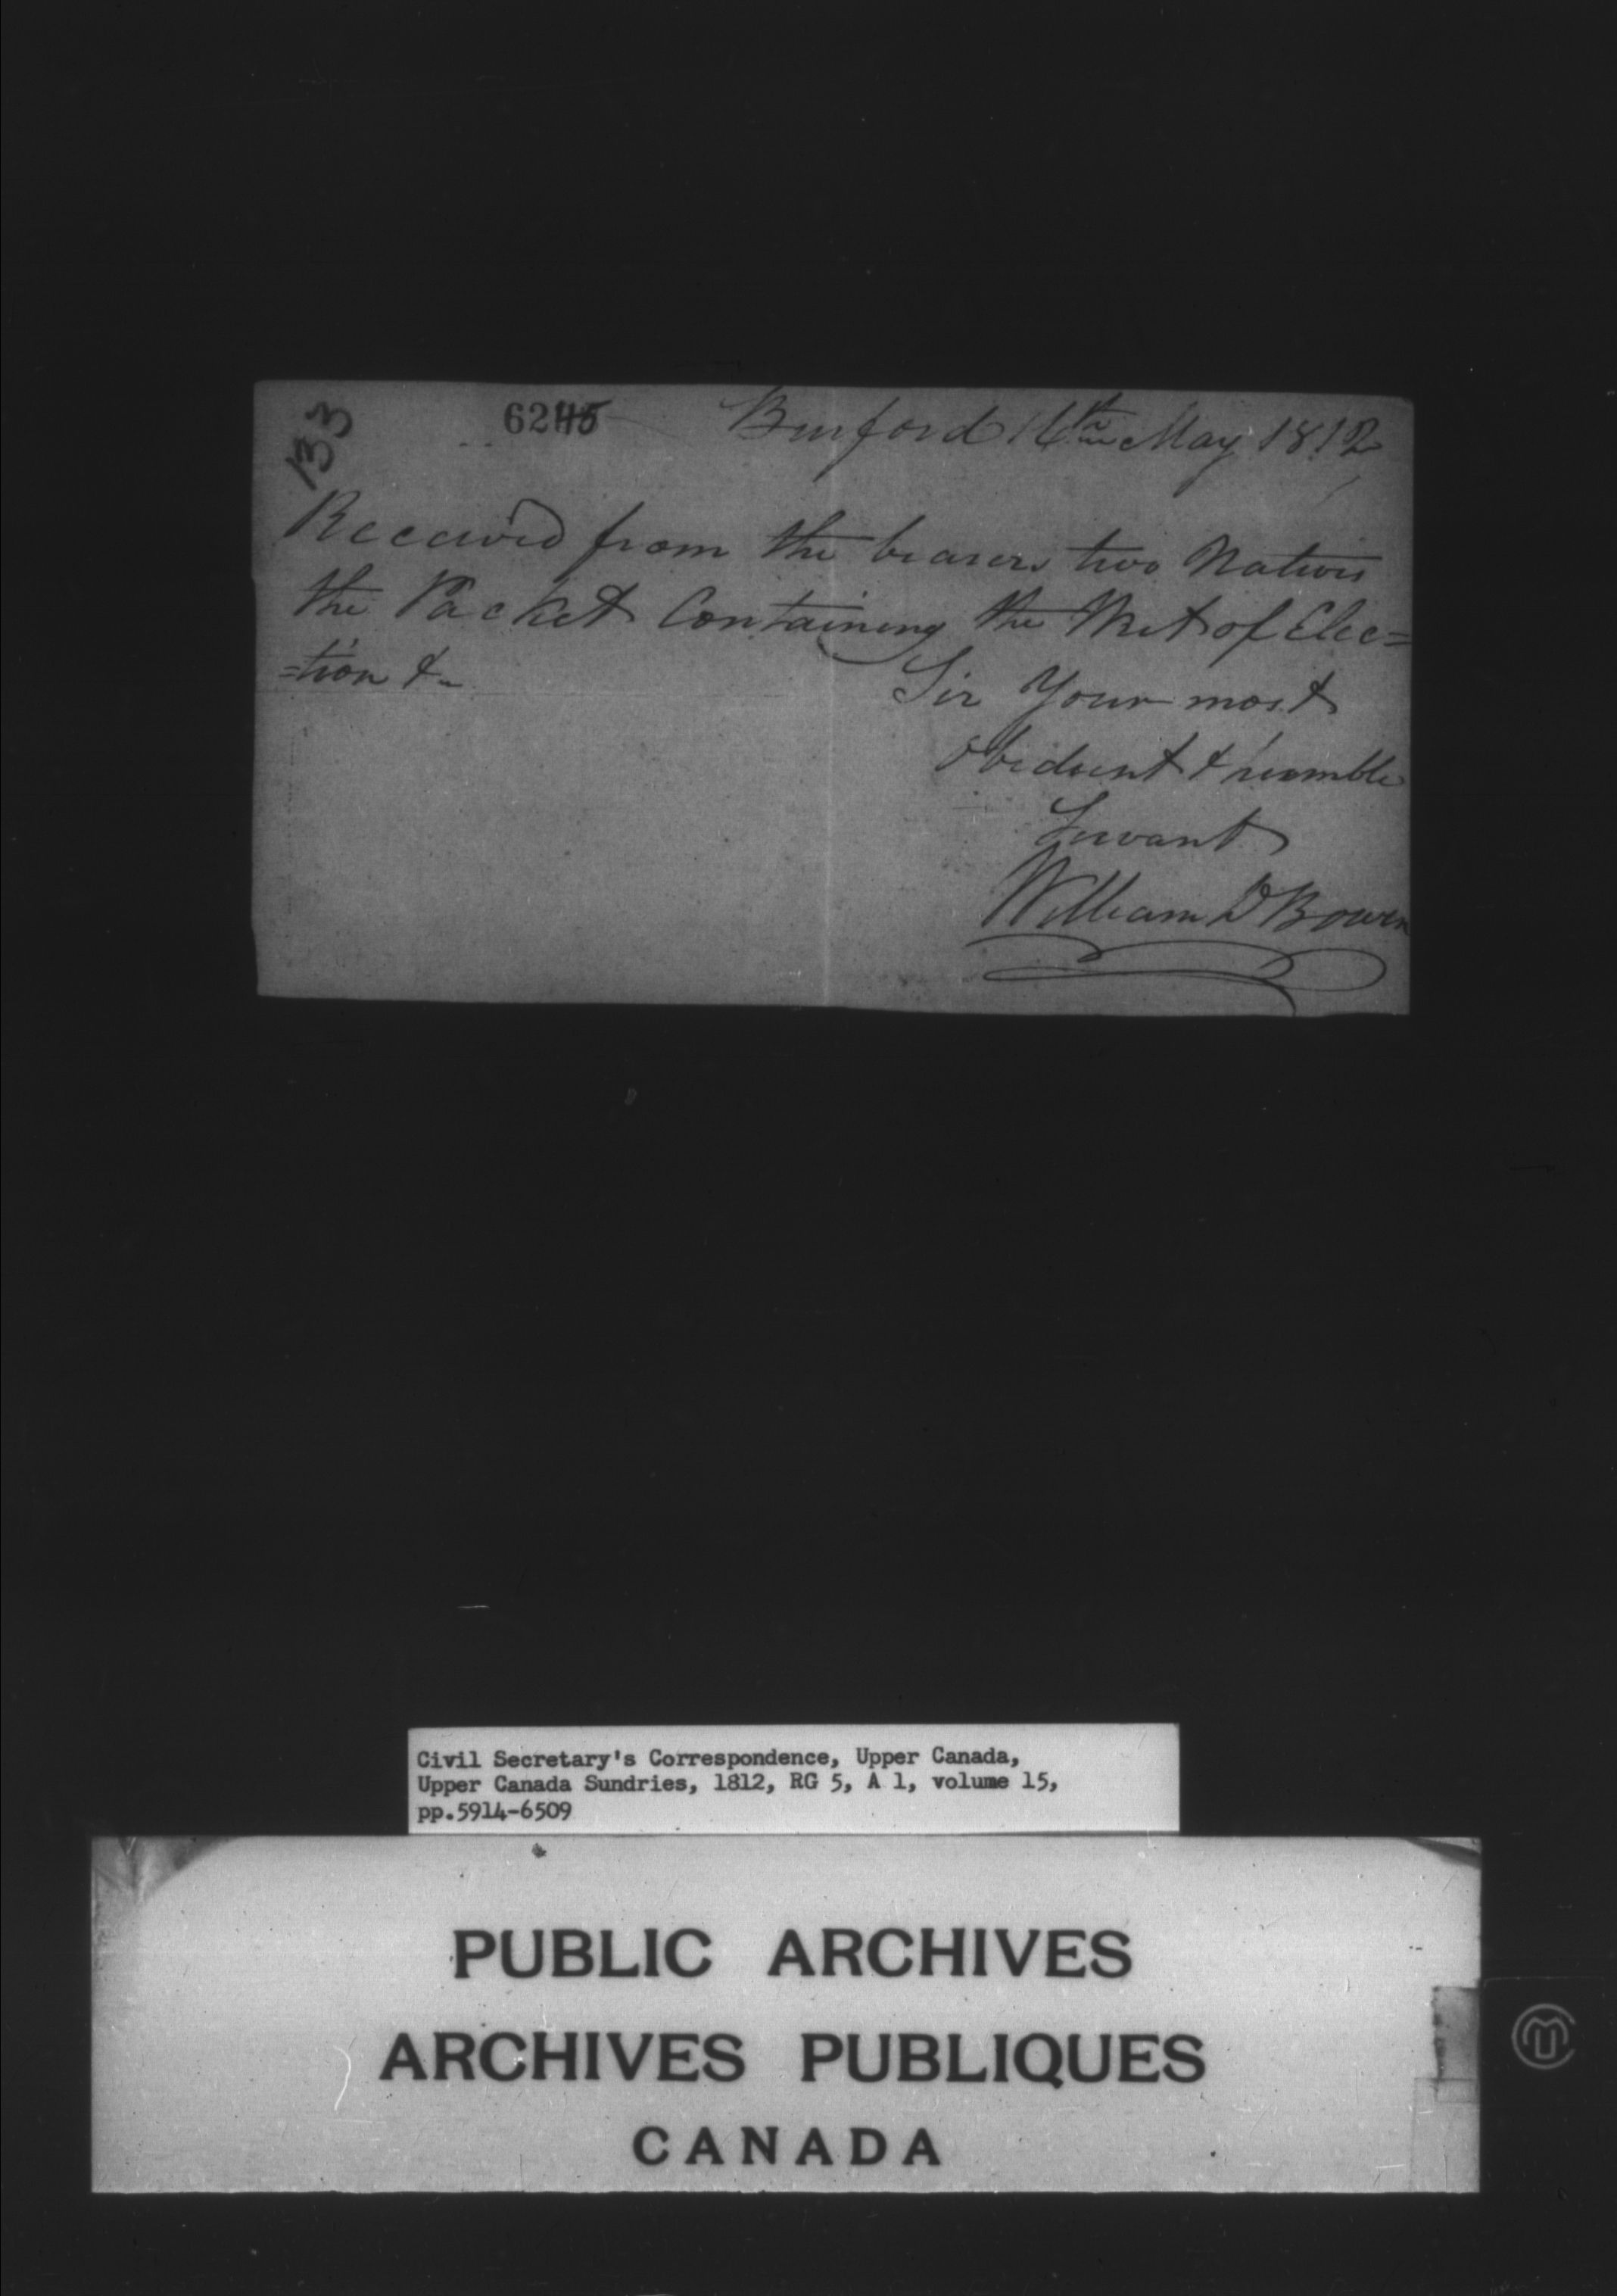 133
6245
Burford 16th May 1812
Received from the bearers two Natives
the Packet Containing the Writ of Elec=
=tion &
Sir Your most
Obedient & humble
Servant
William D Bowen
Civil Secretary's Correspondence, Upper Canada,
Upper Canada Sundries, 1812, RG 5, A 1, volume 15,
pp.5914-6509
PUBLIC ARCHIVES
ARCHIVES PUBLIQUES
CANADA